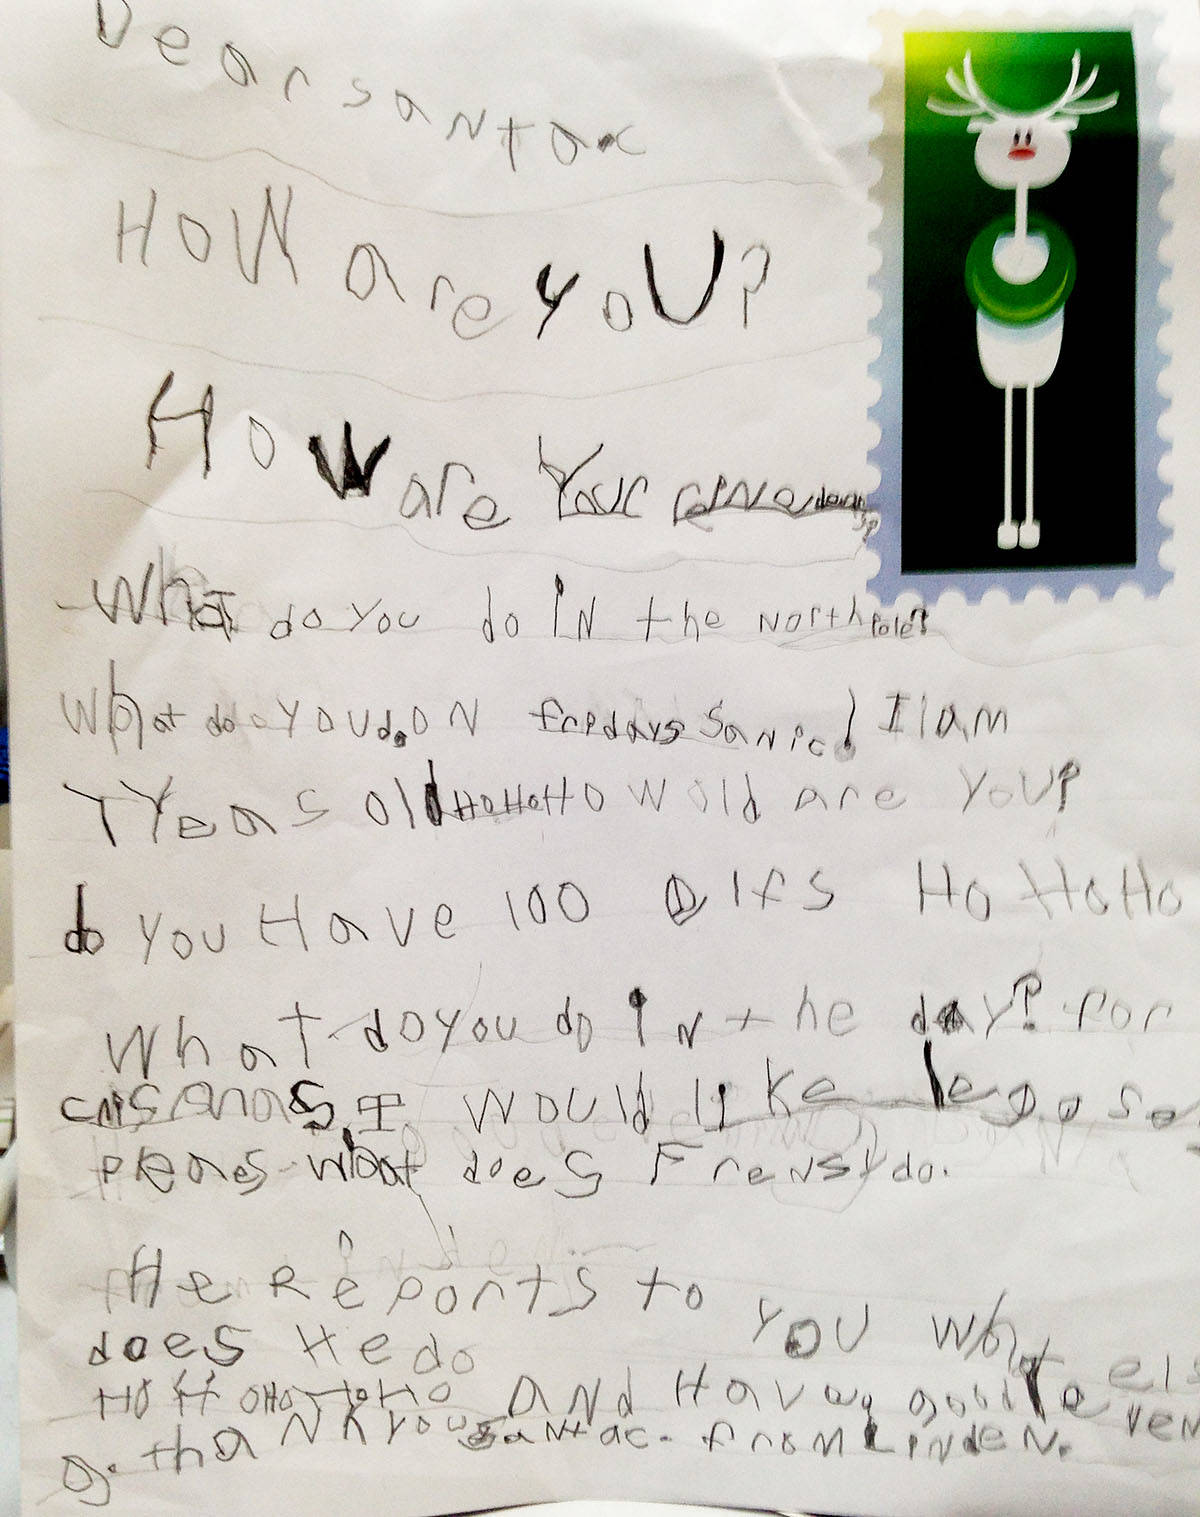 Dear santac
HoW are yoU?
HoW are Your reinedens?
What do you do iN the North Pole?
What do you do oN fridays Sanic! I am
7 Years old HoHoHo How old are you?
do you Have 100 Hoho Ho
What do you do iN the day? for
I would like legos
pleaes what does Frensy do.
He Reports to you what els
does He do
HoHoHoHoHo and Have a good
thaNk you Santac. from LiNdeN.